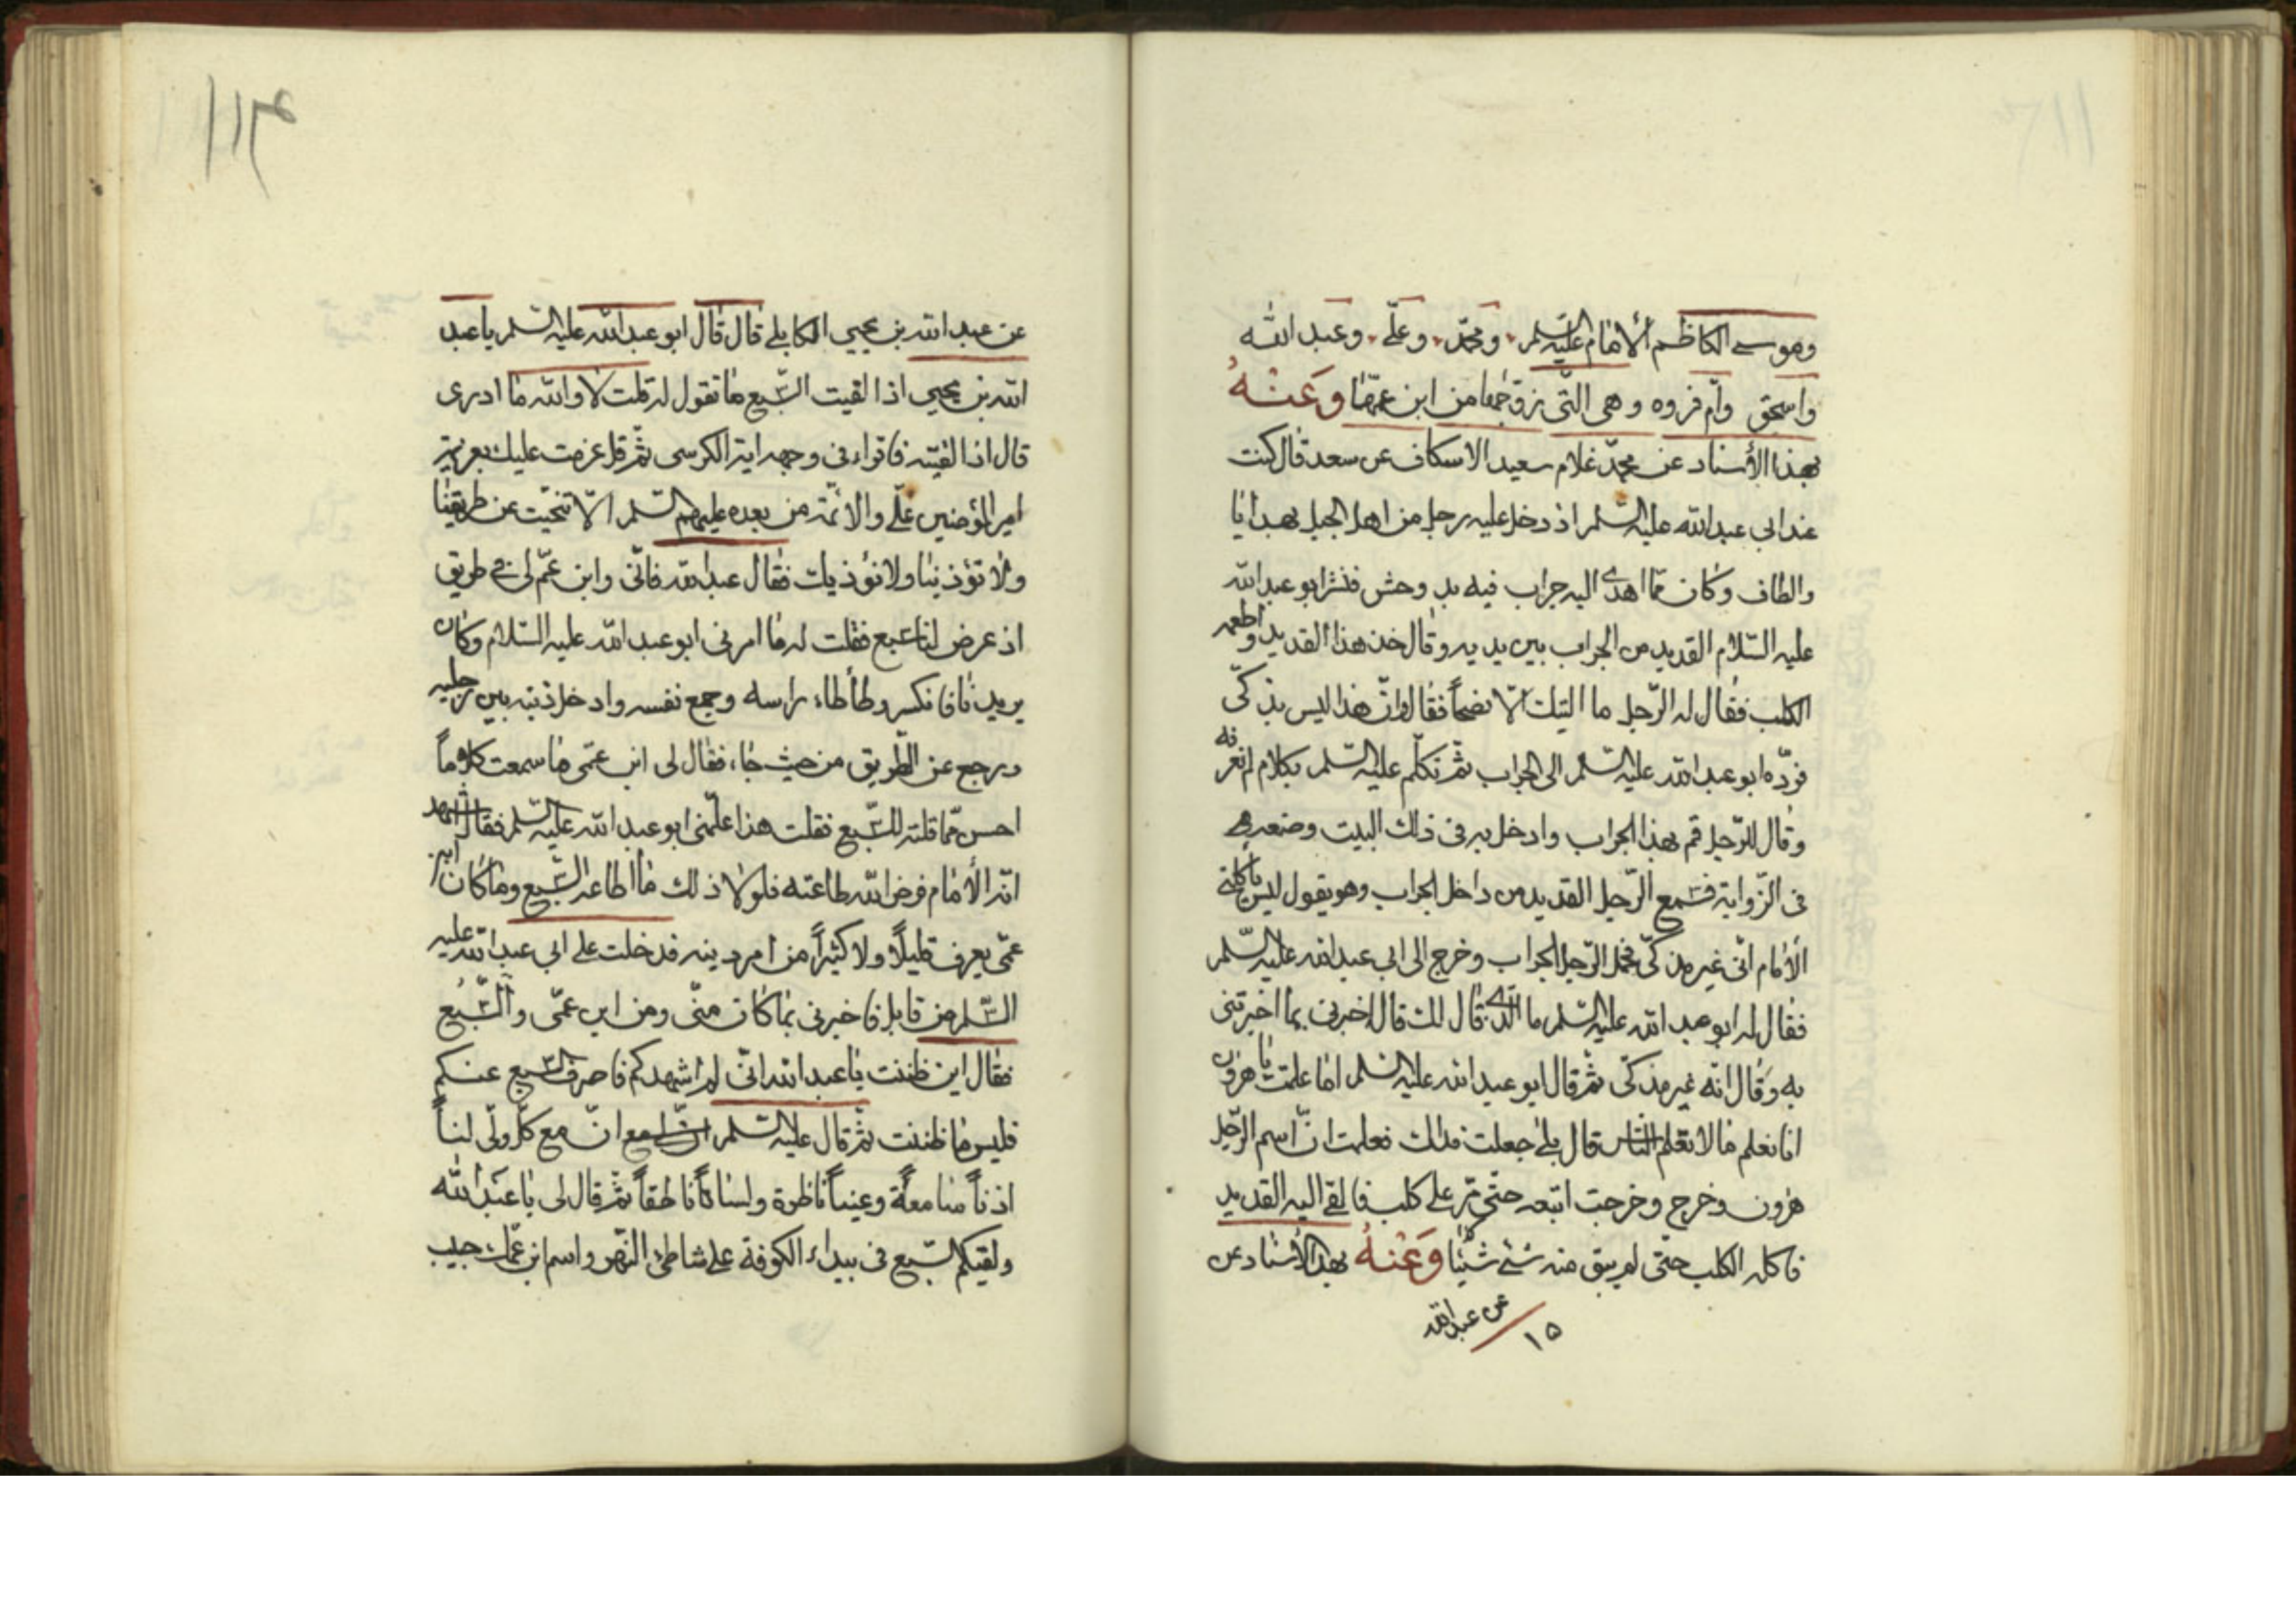 وموسى الكاظم الأمام عليه السّلم ومحمّد وعلّى وعبد الله
واسحق وأم فروه وهى الّتى زوّجها من ابن عمّها وَعَنْهُ
بهذا الأسناد عن محمّد غلام سعيد الاسكاف عن سعد قال كنت
عند ابى عبد الله عليه السّلم اذ دخل عليه رجل من اهل الجبل بهدايا
والطاف وكان ممّا اهدى اليه جراب فيه قديد وحش فنثر ابو عبد الله
عليه السّلام القديد من الجراب بين يديه وقال خذ هذا القديد واطعمه
الكلب فقال له الرّجل ما اليتك الّا نصحاً فقال وانّ هذا ليس بذكّى
فردّه ابو عبد الله عليه السّلم الى الجراب ثمّ تكلّم عليه السّلم بكلام لم نعرفه
وقال للرّجل قم بهذا الجراب وادخل به فى ذلك البيت وضعه
فى الزّواية فسمع الرّجل القديد من داخل الجراب وهو يقول ليس ياكلنى
الأمام انّى غير مذكّى فحمل الرّجل الجراب وخرج الى ابى عبد الله عليه السّلم
فقال له ابو عبد الله عليه السّلم ما الّذى قال لك قال اخبرنى بما اخبرتنى
به وقال انّه غير مذكّى ثمّ قال ابو عبد الله عليه السّلم اما علمت يا هرون
انا نعلم ما لا تعلم الناس قال بلى جعلت فداك فعلمت انّ اسم الرّجل
هرون وخرج وخرجت اتبعه حتّى مرّ على كلب فالقى اليه القديد
فاكله الكلب حتّى لم يبق منه شئ شيئا وَعَنْهُ بهذا الأسناد عن
عن عبد الله
١٥
عن عبد الله بن يحيى الكابلى قال قال ابو عبد الله عليه السّلم يا عبد
الله بن يحيى اذا لقيت السّبع ما تقول له قلت لا والله ما ادرى
قال اذا لقيته فاقراء فى وجهه اية الكرسى ثمّ قل عزمت عليك بعزيمة
امير المؤمنين علّى والائمّة من بعده عليهم السّلم الّا تنحّيت عن طريقنا
ولا تؤذينا ولا نؤذيك فقال عبد الله فانّى وابن عمّ لى فى طريق
اذ عرض لنا سبع فقلت له ما امرنى ابو عبد الله عليه السّلام وكان
يريدنا فانكسر وطأطاء راسه وجمع نفسه وادخل ذنبه بين رجليه
ورجع عن الطّريق من حيث جاء فقال لى ابن عمّى ما سمعت كلاماً
احسن ممّا قلته للسّبع فقلت هذا علّمنى ابو عبد الله عليه السّلم فقال اشهد
انّه الأمام فرض الله طاعته فلولا ذلك ما اطاعه السّبع وما كان ابن
عمّى يعرف قليلًا ولا كثيراً من امر دينه فدخلت على ابى عبد الله عليه
السّلم من قابل فاخبرنى بما كان منّى ومن ابن عمّى والسّبع
فقال اين ظننت يا عبد الله انّى لم اشهدكم فاصرف السّبع عنكم
فليس ما ظننت ثمّ قال عليه السّلم انّ مع كلّ ولّى لناً
اذناً سامعةً وعيناً ناظرة ولساناً ناطقاً ثمّ قال لى يا عَبْد الله
ولقيكم السّبع فى بيداء الكوفة على شاطئ النّهر واسم ابن عمّك حبيب